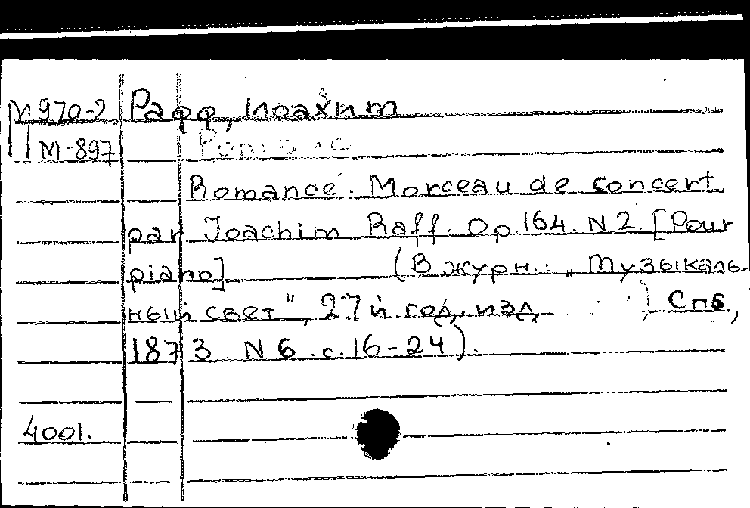 М 970-2 Рафф, Иоахим
М-897
Romance. Morceau de concert
par Joachim Raff. Op. 164. N 2. [Pour
piano] (В журн.: „Музыкаль-
ный свет", 27й год, изд. ) Спб.,
1873 N 6. с. 16-24).
4001.